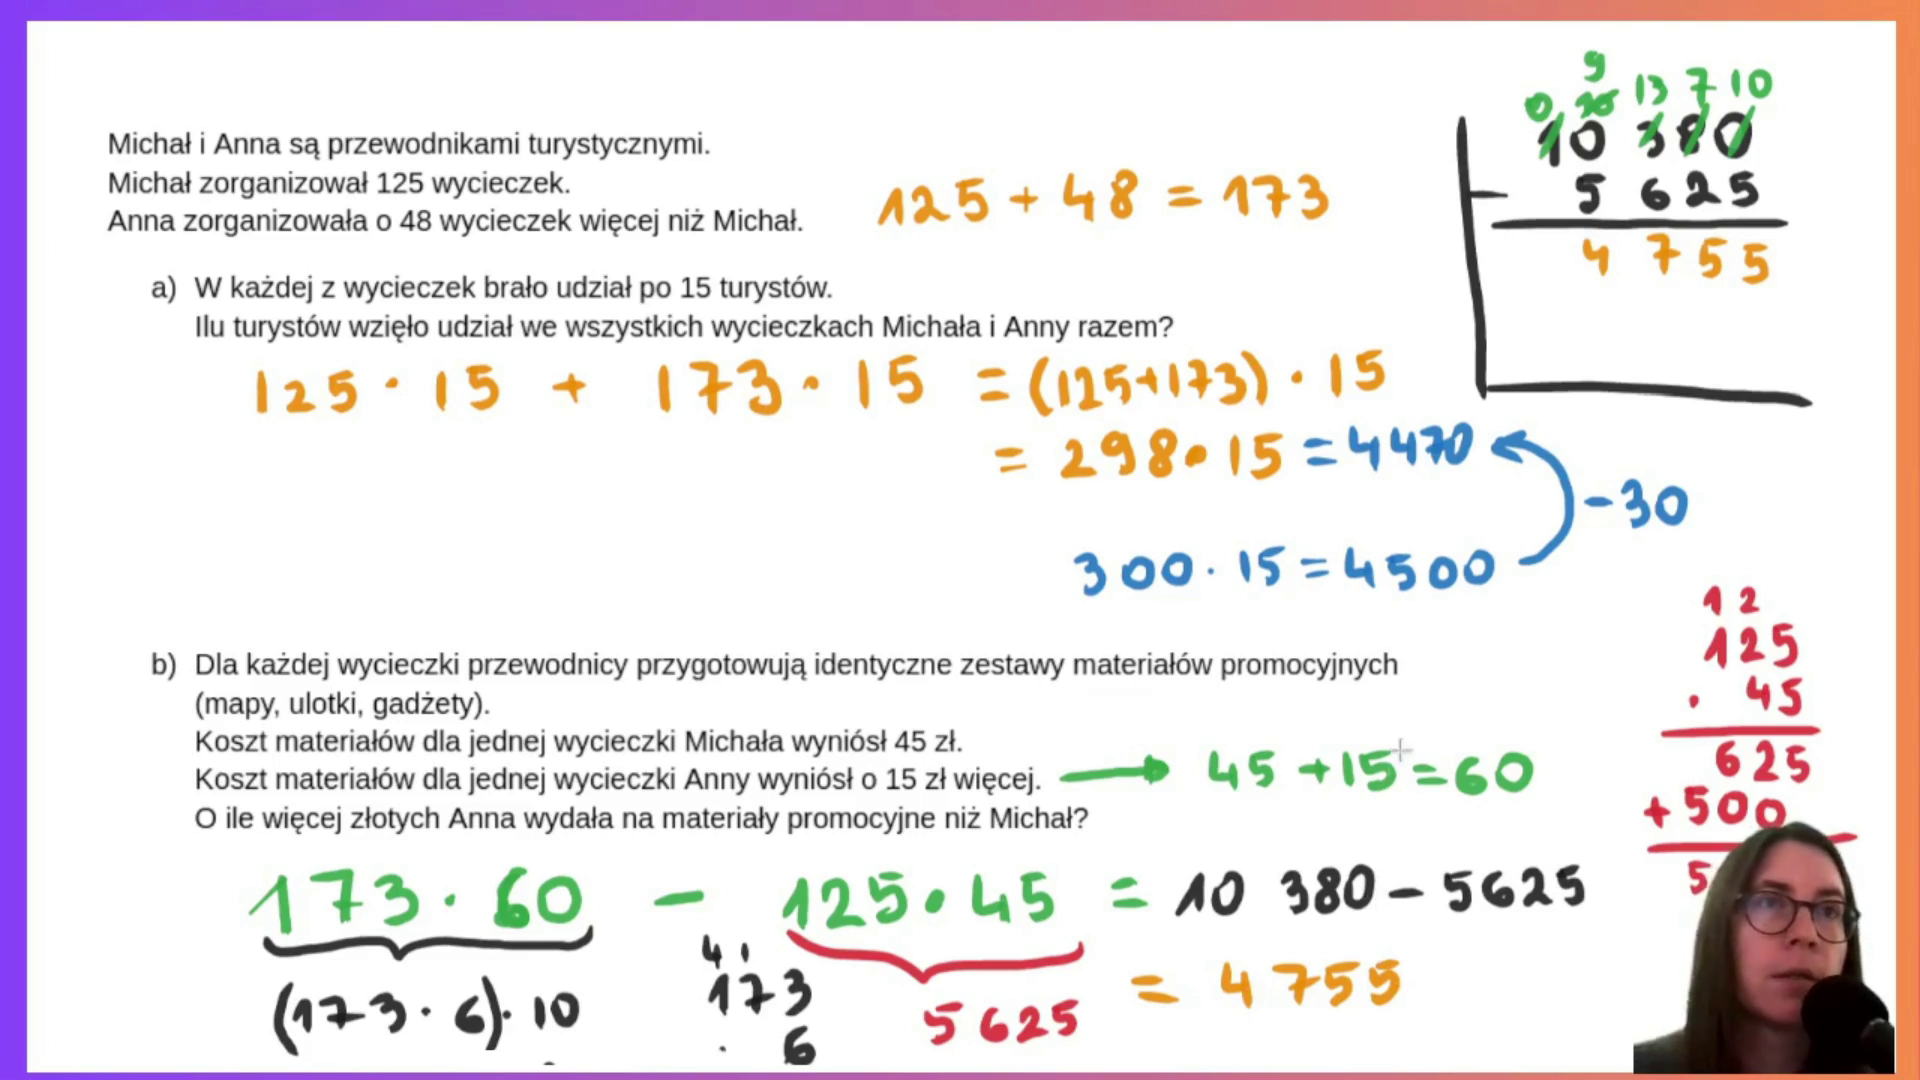 Michał i Anna są przewodnikami turystycznymi.
Michał zorganizował 125 wycieczek.
Anna zorganizowała o 48 wycieczek więcej niż Michał.
125 + 48 = 173
9
0 10 13 7 10
10 380
- 5 625
4 755
a) W każdej z wycieczek brało udział po 15 turystów.
Ilu turystów wzięło udział we wszystkich wycieczkach Michała i Anny razem?
125 · 15 + 173 · 15 = (125+173) · 15
= 298 · 15 = 4470
- 30
300 · 15 = 4500
b) Dla każdej wycieczki przewodnicy przygotowują identyczne zestawy materiałów promocyjnych
(mapy, ulotki, gadżety).
Koszt materiałów dla jednej wycieczki Michała wyniósł 45 zł.
Koszt materiałów dla jednej wycieczki Anny wyniósł o 15 zł więcej. → 45 + 15 = 60
O ile więcej złotych Anna wydała na materiały promocyjne niż Michał?
1 2
125
· 45
625
+ 500
5
173 · 60 - 125 · 45 = 10 380 - 5625
= 4 755
(173 · 6) · 10
4 1
173
· 6
5625